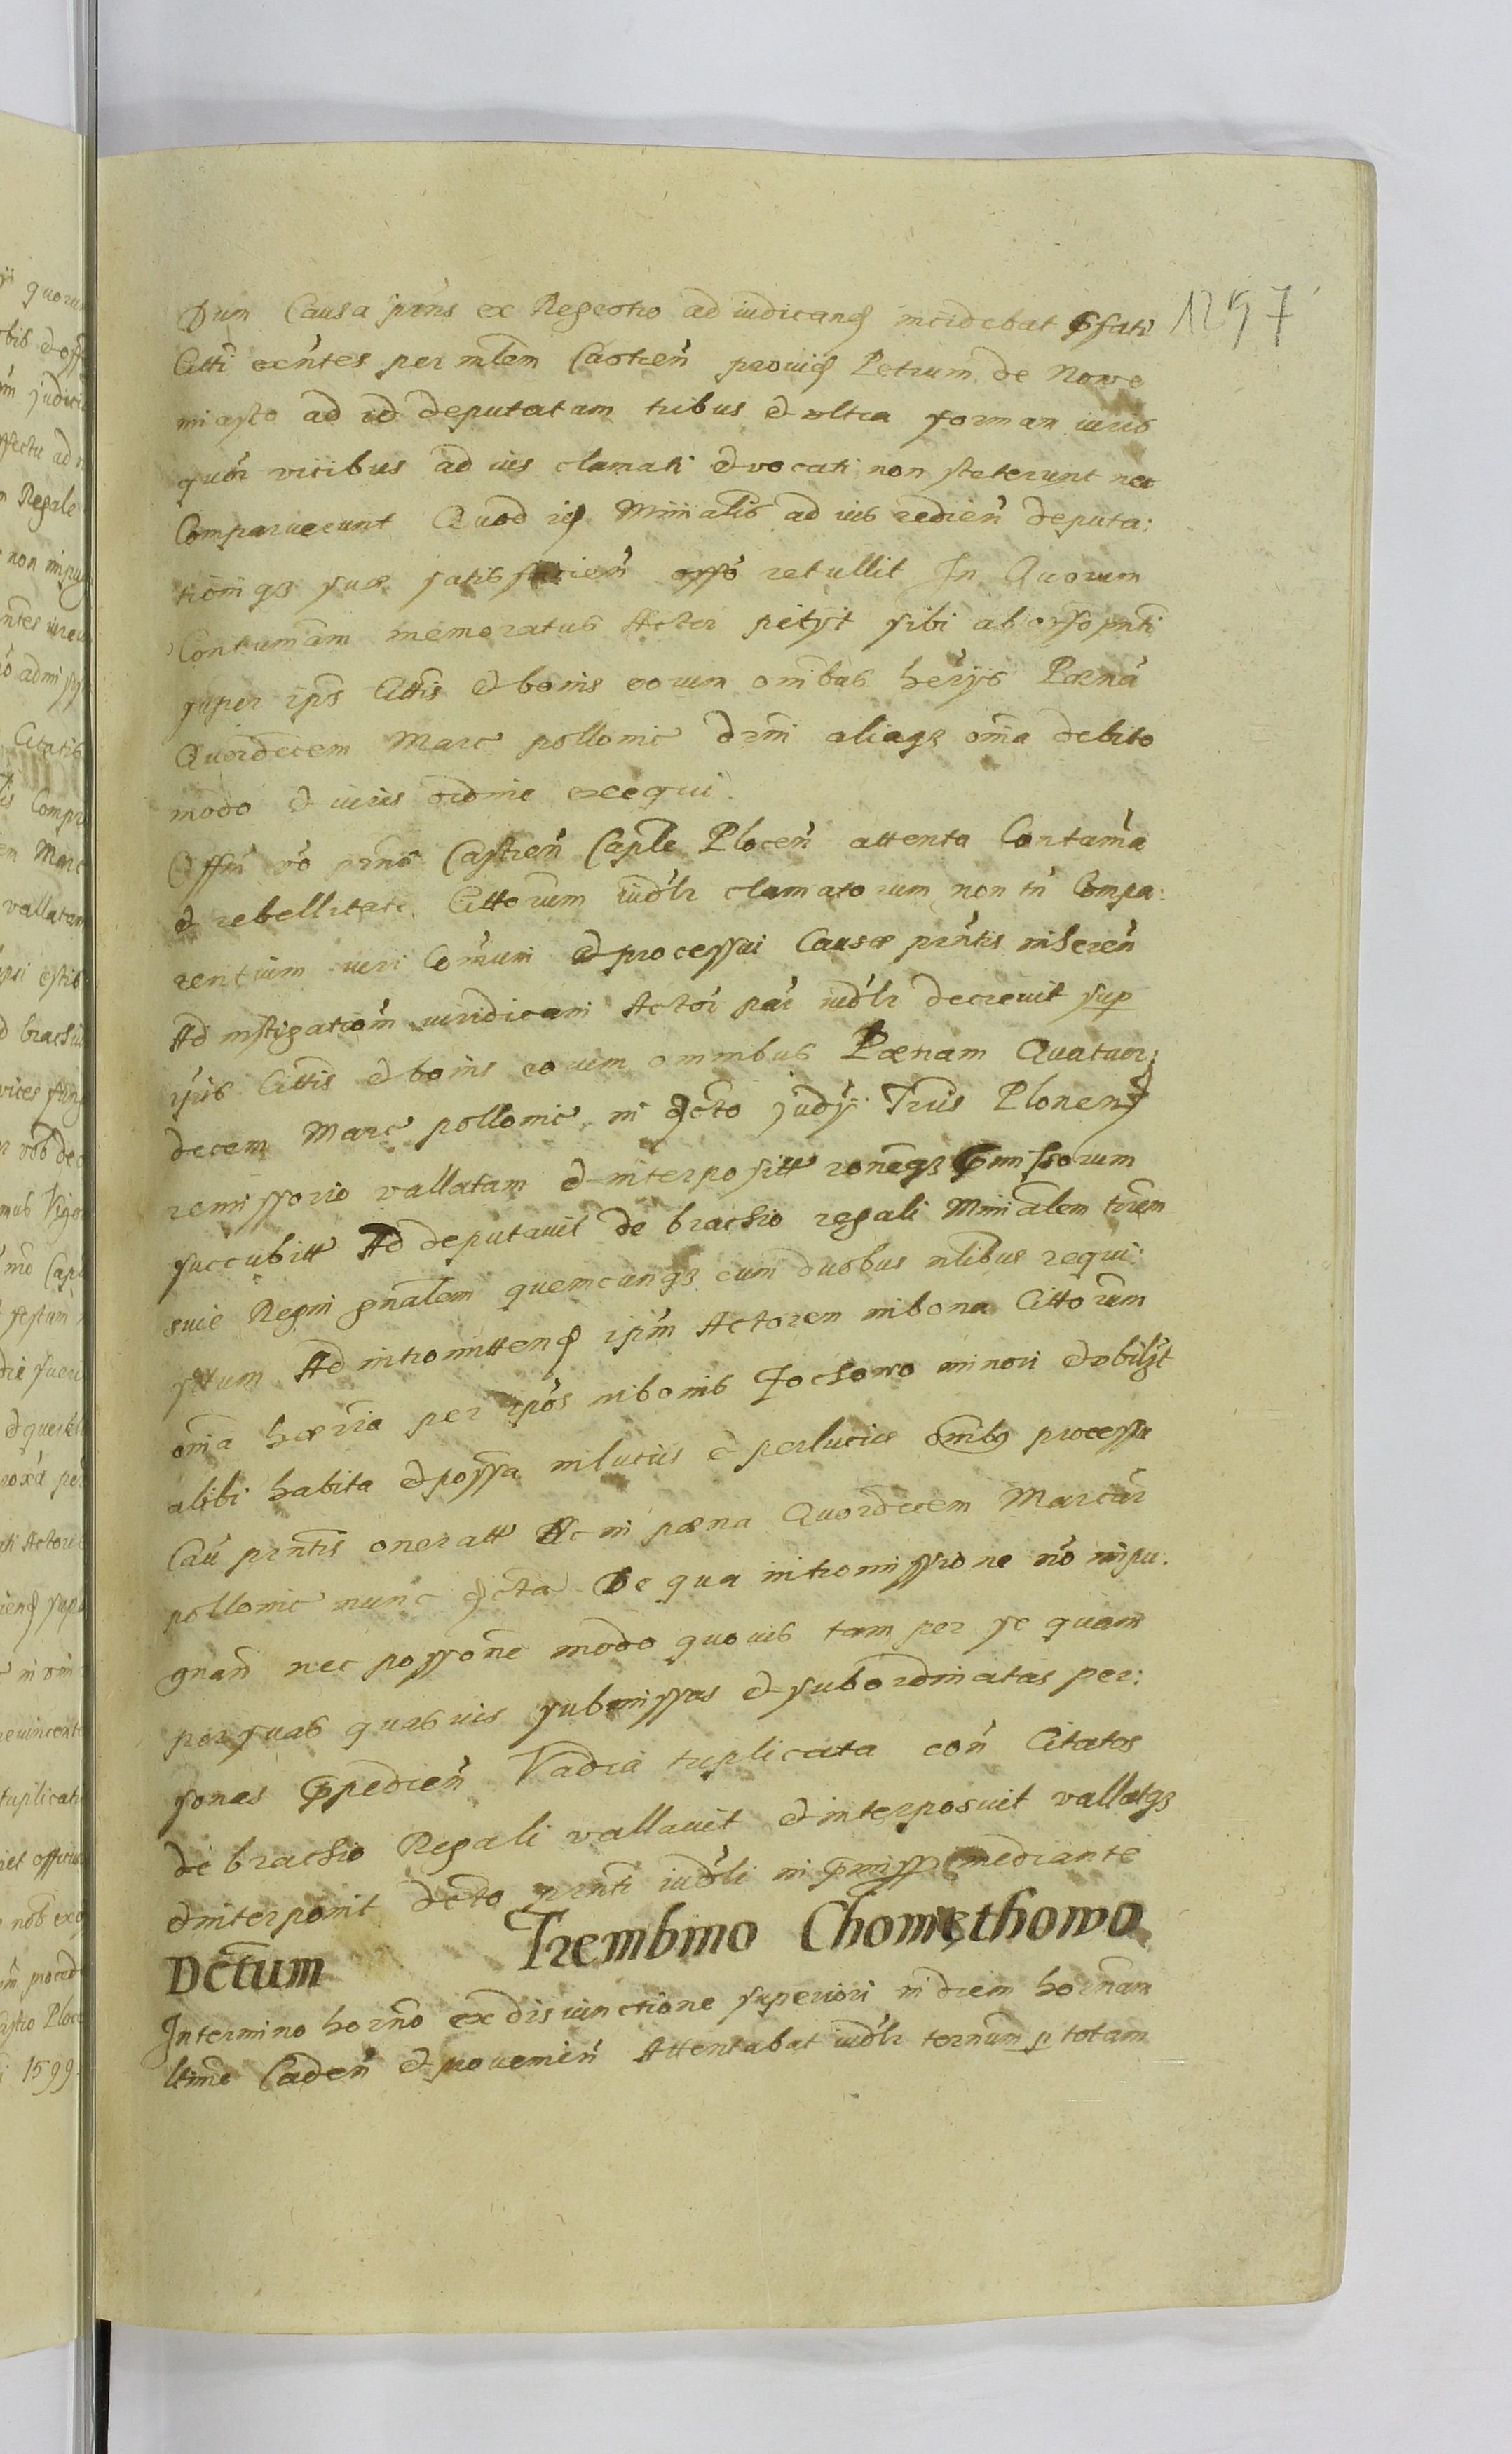 1297
Dum Causa pñs ex Regestro ad iudicand incidebat pfati
Citti exñtes per mlem Castreñ provid Petrum de Nowe
miasto ad id deputatum tribus et ultra forman iuris
quòr vicibus ad ius clamati et vocati non steterunt nec
Comparuerunt Quod id Minialis ad ius redieñ deputa:
tionigs suæ satisfacieñ offo retullit In Quorum
Contumãm memoratus Actor petyt sibi ab offo pñti
super ipis Cittis et bonis eorum omibus herijs Pænã
Quordecem Marc pollonic dcrni aliaqs omia debito
modo et iuris ordine exequi
Offm vo pñs Castreñ Caple Ploceñ attenta Contumã
et rebellitate Cittorum iudlr clamatorum non tñ Compa:
rentium iuri Comuni et processui Causæ prñtis inhereñ
Ad instigationm iuridicam Actor par iudlr decrevit sup
ipis Cittis et bonis eorum omnibus Pænam Quatuor;
decem Marc pollonic in dcto judy Trlis Ploneñ
remissorio vallatam et interpositt ronegs pmissorum
succubitt Ad deputavit de brachio regali Minialem trrem
suie Regni gnalem quemcungs cum duobus nlibus requi:
situm Ad intromittend ipm Actorem in bona Cittorum
omia hæria per ipos in bonis Jochowo minori et ubilyt
alibi habita et possa in luciis et perlucius omibs processu
Cau prntis oneratt Ac in pæna Quordecem Marcar
pollonic nunc dcta De qua intromissione no impu:
gnañ nec possone modo quovis tam per se quam
per suas quasvis submissas et subordinatas per:
sonas ppedieñ Vadia triplicata coñ Citatos
de brachio Regali vallavit et interposuit vallatgs
et interponit dcto prnti iudli in pmiss mediante
Dctum Trembino Chomethowo
In termino horno ex disiunctione superiori in diem hornam
ltime Cadeñ et proveniẽn Attentabat iudlr ternum p totam